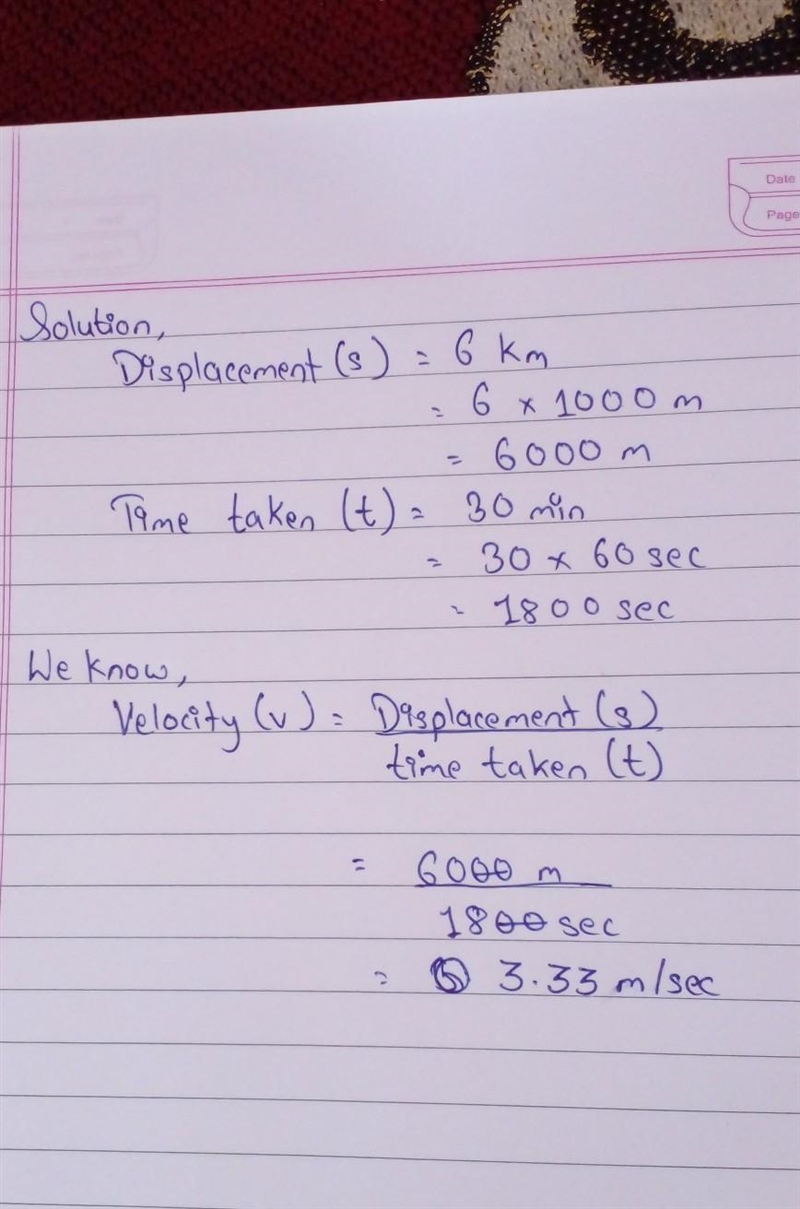 Date
Page
Solution,
Displacement (s) = 6 Km
= 6 × 1000 m
= 6000 m
Time taken (t) = 30 min
= 30 × 60 sec
= 1800 sec
We know,
Velocity (v) = Displacement (s)
time taken (t)
= 6000 m
1800 sec
= 3.33 m/sec